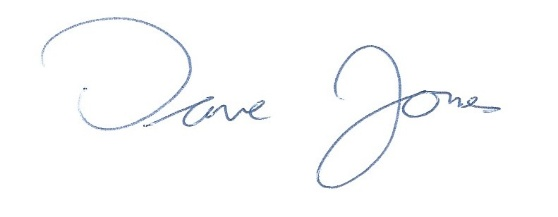 Dave Jones